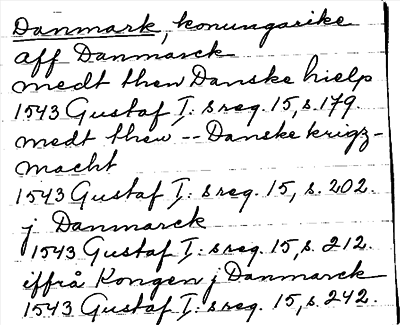 Danmark, konungarike
aff Danmarck
medt then Danske hielp
1543 Gustaf I: s reg. 15, s. 179.
medt then -- Danske krigz-
macht
1543 Gustaf I: s reg. 15, s. 202.
j Danmarck
1543 Gustaf I: s reg. 15, s. 212.
iffrå Kongen j Danmarck
1543 Gustaf I: s reg. 15, s. 242.